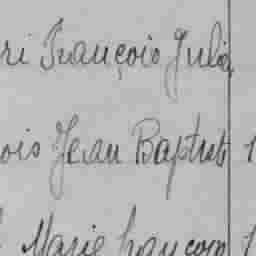 ri François Jules
ois Jean Baptist 1
Marie françois 1